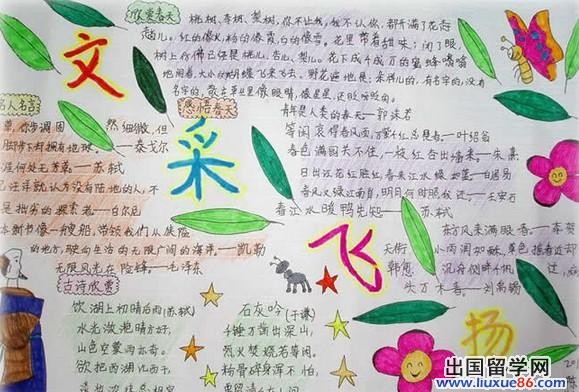 欣赏春天
桃树、李树、梨树,你不让我,我不让你,都开满了花赶
趟儿。红的像火,粉的像霞,白的像雪。花里带着甜味;闭了眼,
树上仿佛已经是桃儿、杏儿、梨儿。花下成千成百的蜜蜂嗡嗡
地闹着,大小的蝴蝶飞来飞去。野花遍地是:杂样儿的,有名字的,没有
名字的,散在草丛里像眼睛,像星星,还眨呀眨的。
文
采
飞
扬
名人名言
然细微,但
泰戈尔
苏轼
已经在洋
陆地的人,不
是拙劣的探索者——白尔尼
本新书像一艘船,带领我们从狭隘
的地方,驶向生活的无限广阔的海洋。——凯勒
无限风光在险峰——毛泽东
感悟春天
青年是人类的春天——郭沫若
等闲识得春风面,万紫千红总是春——叶绍翁
春色满园关不住,一枝红杏出墙来——朱熹
日出江花红胜火,春来江水绿如蓝——白居易
春风又绿江南岸,明月何时照我还。——王安石
春江水暖鸭先知——苏轼
东方风来满眼春——李贺
天街小雨润如酥,草色遥看近却
韩愈
沉舟侧畔千帆
头万木春。——刘禹锡
古诗欣赏
饮湖上初晴后雨(苏轼)
水光潋滟晴方好,
山色空蒙雨亦奇。
欲把西湖比西子,
石灰吟(于谦)
千锤万凿出深山,
烈火焚烧若等闲。
粉骨碎身浑不怕,
出国留学网
www.liuxue86.com